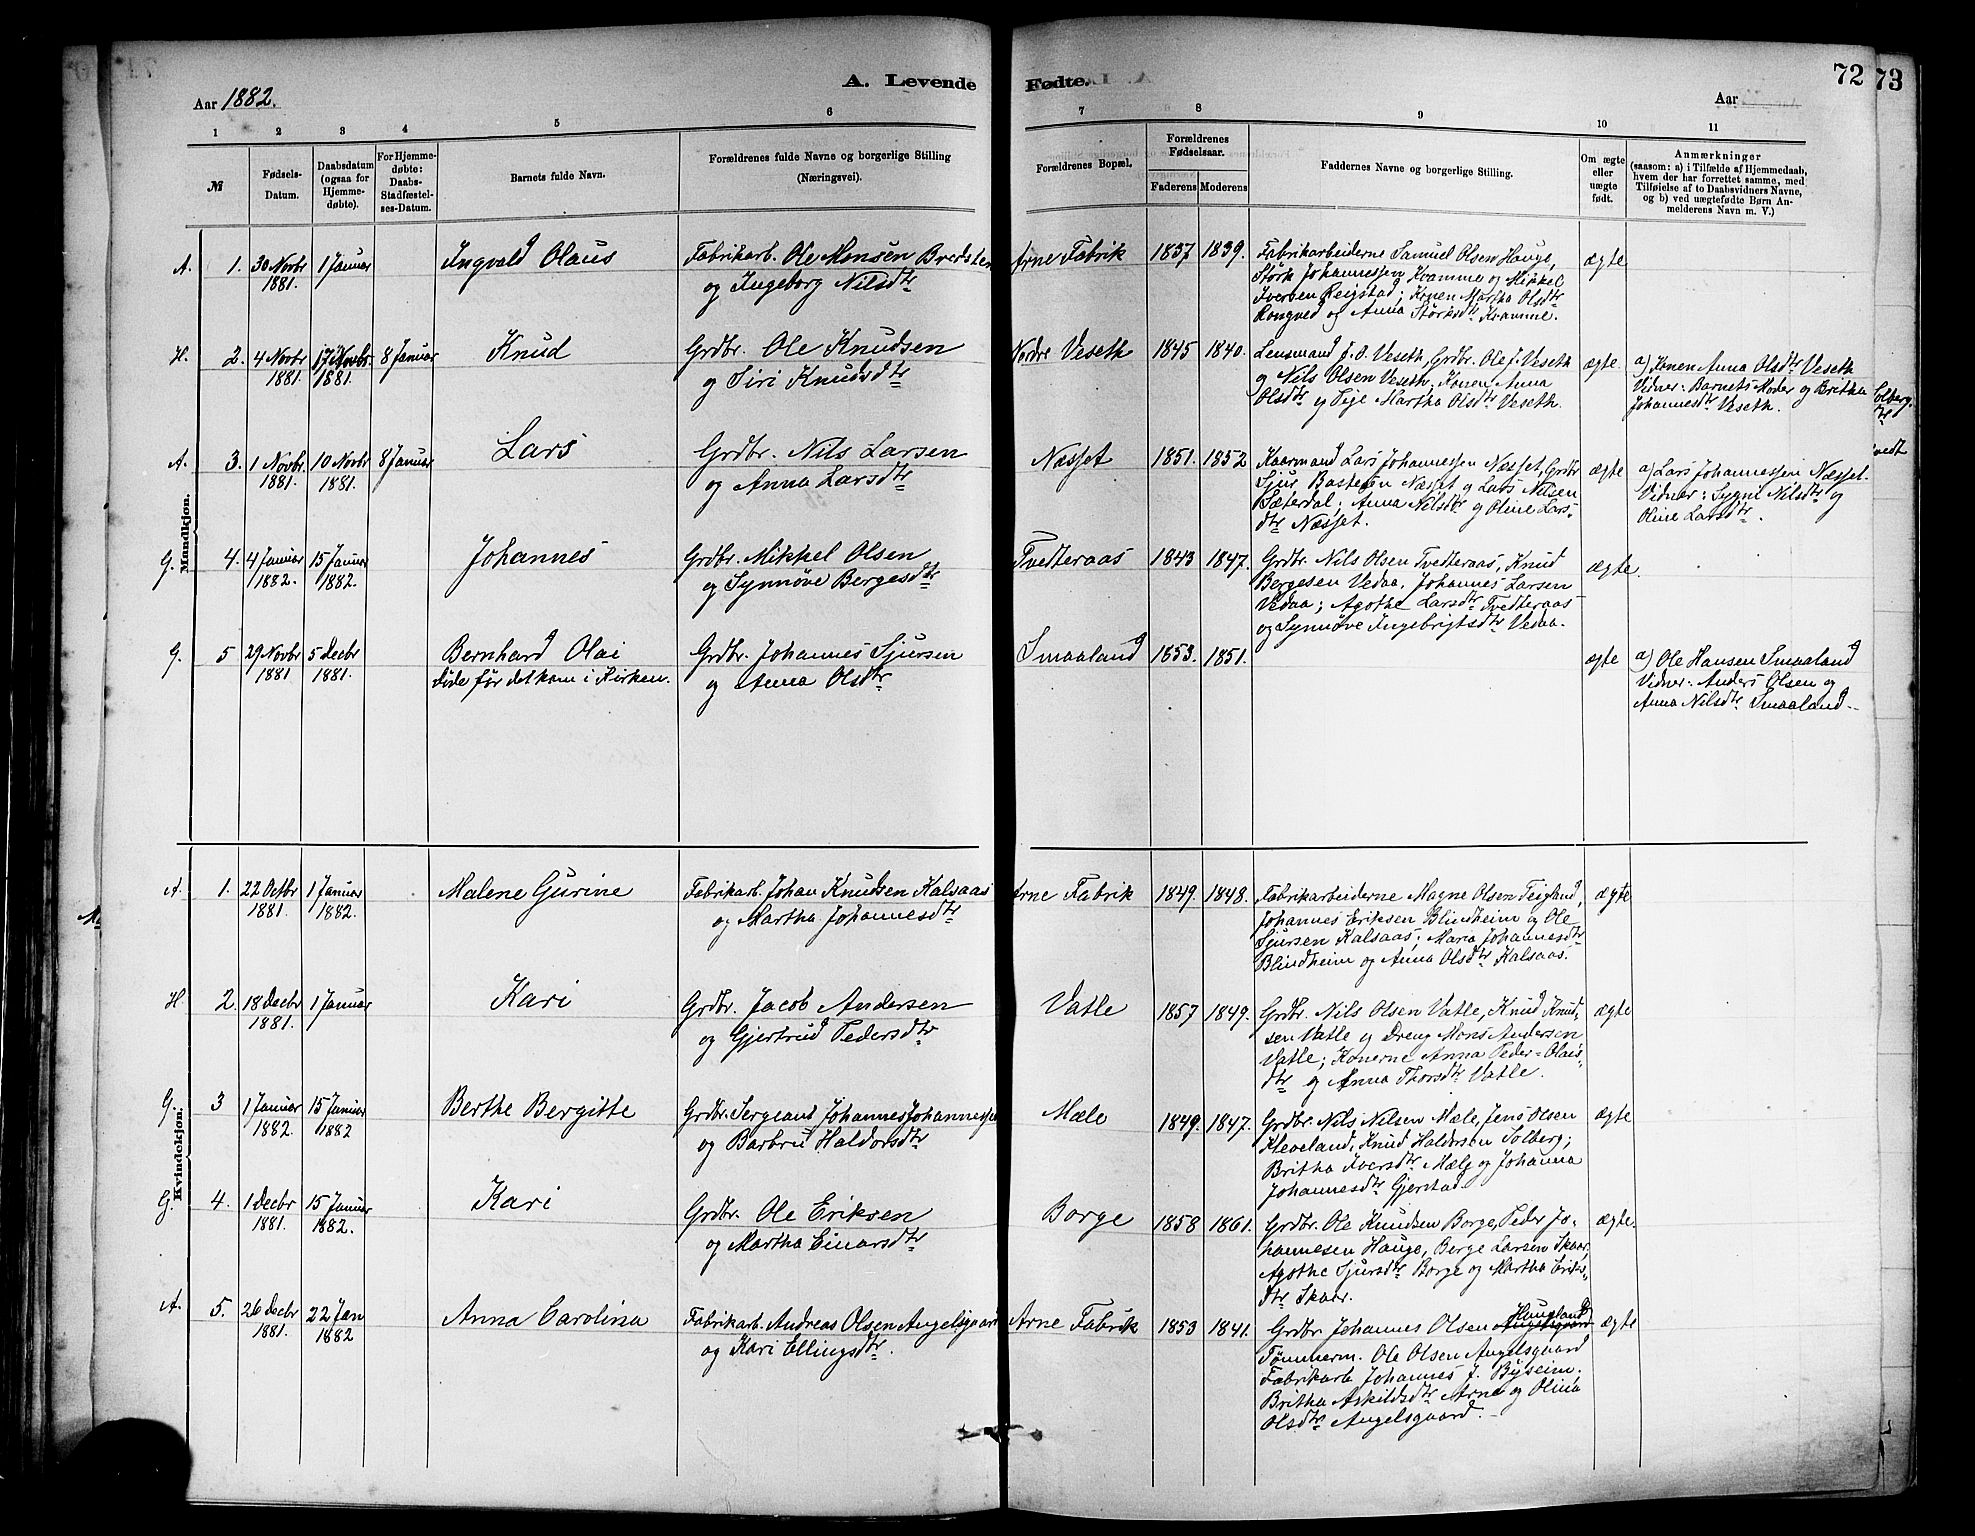 A. Levende Fødte.
72
73
Aar 1882.
Aar
1 2 3 4 5 6 7 8 9 10 11
№
Fødsels-Datum.
Daabsdatum (ogsaa for Hjemmedøbte).
For Hjemmedøbte: Daabs-Stadfæstelses-Datum.
Barnets fulde Navn.
Forældrenes fulde Navne og borgerlige Stilling
(Næringsvei).
Forældrenes Bopæl.
Forældrenes Fødselsaar.
Faderens Moderens
Faddernes Navne og borgerlige Stilling.
Om ægte eller uægte født.
Anmærkninger
(saasom: a) i Tilfælde af Hjemmedaab,
hvem der har forrettet samme, med
Tilføielse af to Daabsvidners Navne,
og b) ved uægtefødte Børn Anmelderens Navn m. V.)
Mandkjøn.
A. 1. 30 Novbr 1881. 1 Januar
Ingvald Olaus
Fabrikarb. Ole Monsen Bredsten
og Ingeborg Nilsdtr
Arne Fabrik 1837 1839.
Fabrikarbeiderne Samuel Olsen Hauge,
Størk Johannessen Kvamme og Mikkel
Iversen Reigstad; Konen Martha Olsdtr
Rongved og Anna Størksdtr Kvamme.
ægte
H. 2. 4 Novbr 1881. 17 Novbr 1881. 8 Januar
Knud
Grdbr. Ole Knudsen
og Siri Knudsdtr
Nordre Veseth 1845 1840.
Lensmand J. O. Veseth, Grdbr. Ole J. Veseth
og Nils Olsen Veseth; Konen Anna
Olsdtr og Pige Martha Olsdtr Veseth.
ægte
a) Konen Anna Olsdtr Veseth
Vidner: Barnets Moder og Britha
Johannesdtr Veseth.
A. 3. 1 Novbr. 1881. 10 Novbr 1881. 8 Januar
Lars
Grdbr. Nils Larsen
og Anna Larsdtr
Næsset 1851. 1852
Kaarmand Lars Johannessen Næsset, Grdbr
Sjur Bastesen Næsset og Lars Nilsen
Sæterdal; Anna Nilsdtr og Oline Larsdtr Næsset.
ægte
a) Lars Johannessen Næsset.
Vidner: Sygni Nilsdtr og
Oline Larsdtr.
G. 4. 4 Januar 1882. 15 Januar 1882.
Johannes
Grdbr. Mikkel Olsen
og Synnøve Bergesdtr
Tvedteraas 1843 1847.
Grdbr. Nils Olsen Tvedteraas, Knud
Bergesen Vedaa, Johannes Larsen
Vedaa; Agothe Larsdtr Tvedteraas
og Synnøve Ingebrigtsdtr Vedaa.
ægte.
G. 5 29 Novbr 1881 5 Decbr 1881.
Bernhard Olai
døde før det kom i Kirken.
Grdbr. Johannes Sjursen
og Anna Olsdtr
Smaaland 1853. 1851.
ægte
a) Ole Hansen Smaaland
Vidner: Anders Olsen og
Anna Nilsdtr Smaaland.
Kvindekjøn.
A. 1. 22 Octbr 1881. 1 Januar 1882.
Malene Gurine
Fabrikarb. Johan Knudsen Kalsaas
og Martha Johannesdtr
Arne Fabrik 1849. 1848.
Fabrikarbeiderne Magne Olsen Teigland,
Johannes Eriksen Blindheim og Ole
Sjursen Kalsaas; Maria Johannesdtr
Blindheim og Anna Olsdtr Kalsaas.
ægte
H. 2. 18 Decbr 1881. 1 Januar
Kari
Grdbr. Jacob Andersen
og Gjertrud Pedersdtr
Vatle 1857 1849.
Grdbr. Nils Olsen Vatle, Knud Knudsen Vatle og Dreng Mons Andersen
Vatle; Konerne Anna Peder-Olaisdtr og Anna Thorsdtr Vatle.
ægte
G. 3 1 Januar 1882. 15 Januar 1882
Berthe Bergitte
Grdbr. Sergeant Johannes Johannessen
og Barbru Haldorsdtr
Mæle 1849. 1847.
Grdbr. Nils Nilsen Mæle, Jens Olsen
Kleveland, Knud Haldorsen Solberg;
Britha Iversdtr Mæle og Johanna
Johannesdtr Gjerstad
ægte
G. 4. 1 Decbr 1881. 15 Januar 1882.
Kari
Grdbr. Ole Eriksen
og Martha Einarsdtr
Borge 1858 1861.
Grdbr. Ole Knudsen Borge, Peder Johannesen Hauge, Berge Larsen Skaar,
Agothe Sjursdtr Borge og Martha Eriksdtr Skaar.
ægte.
A. 5. 26 Decbr 1881. 22 Jan 1882
Anna Carolina
Fabrikarb. Andreas Olsen Angelsgaard
og Kari Ellingsdtr.
Arne Fabrik 1853 1841.
Haugland
Grdbr Johannes Olsen Angelsgaard
Tømmerm. Ole Olsen Angelsgaard
Fabrikarb Johannes J. Byseim.
Britha Askildsdtr Arne og Olina
Olsdtr Angelsgaard.
ægte